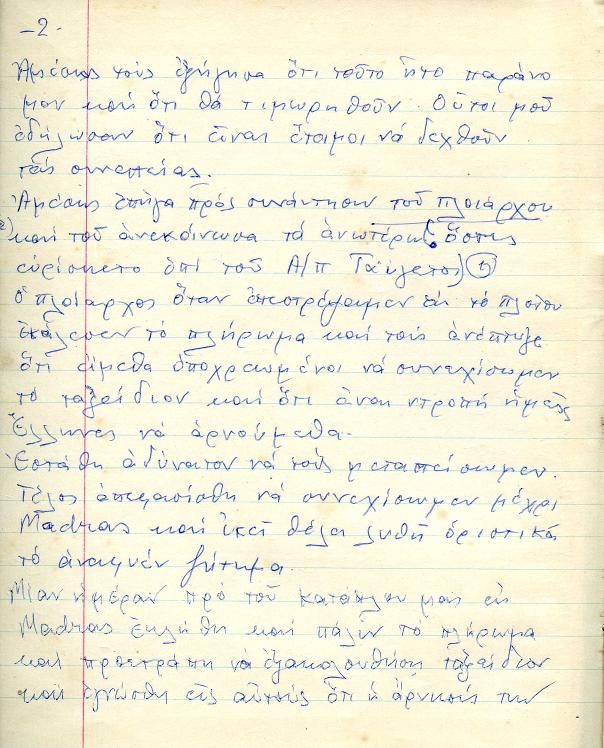 -2-
Ἀμέσως τούς ἐξήγησα ὅτι τοῦτο ἦτο παράνο
μον καί ὅτι θά τιμωρηθοῦν. Οὗτοι μοῦ
ἐδήλωσαν ὅτι εἶναι ἕτοιμοι νά δεχθοῦν
τάς συνεπείας.
Ἀμέσως ἐπῆγα πρός συνάντησιν τοῦ πλοιάρχου
καί τοῦ ἀνεκοίνωσα τά ἀνωτέρω ὅστις
εὑρίσκετο ἐπί τοῦ Α/Π Ταΰγετος)
ὁ πλοίαρχος ὅταν ἐπεστρέψαμεν εἰς τό πλοῖον
ἐκάλεσεν τό πλήρωμα καί τούς ἀνέπτυξε
ὅτι εἴμεθα ὑποχρεωμένοι νά συνεχίσωμεν
τό ταξείδιον καί ὅτι εἶναι ντροπή ἡμεῖς
Ἕλληνες νά ἀρνούμεθα.
Ἐστάθη ἀδύνατον νά τούς μεταπείσωμεν.
Τέλος ἀπεφασίσθη νά συνεχίσωμεν μέχρι
Madras καί ἐκεῖ θέλει λυθῆ ὁριστικά
τό ἀναφυέν ζήτημα.
Μίαν ἡμέραν πρό τοῦ κατάπλου μας εἰς
Madras ἐκλήθη καί πάλιν τό πλήρωμα
καί προετράπη νά ἐξακολουθήση ταξείδιον
καί ἐγνώσθη εἰς αὐτούς ὅτι ἡ ἄρνησίς των